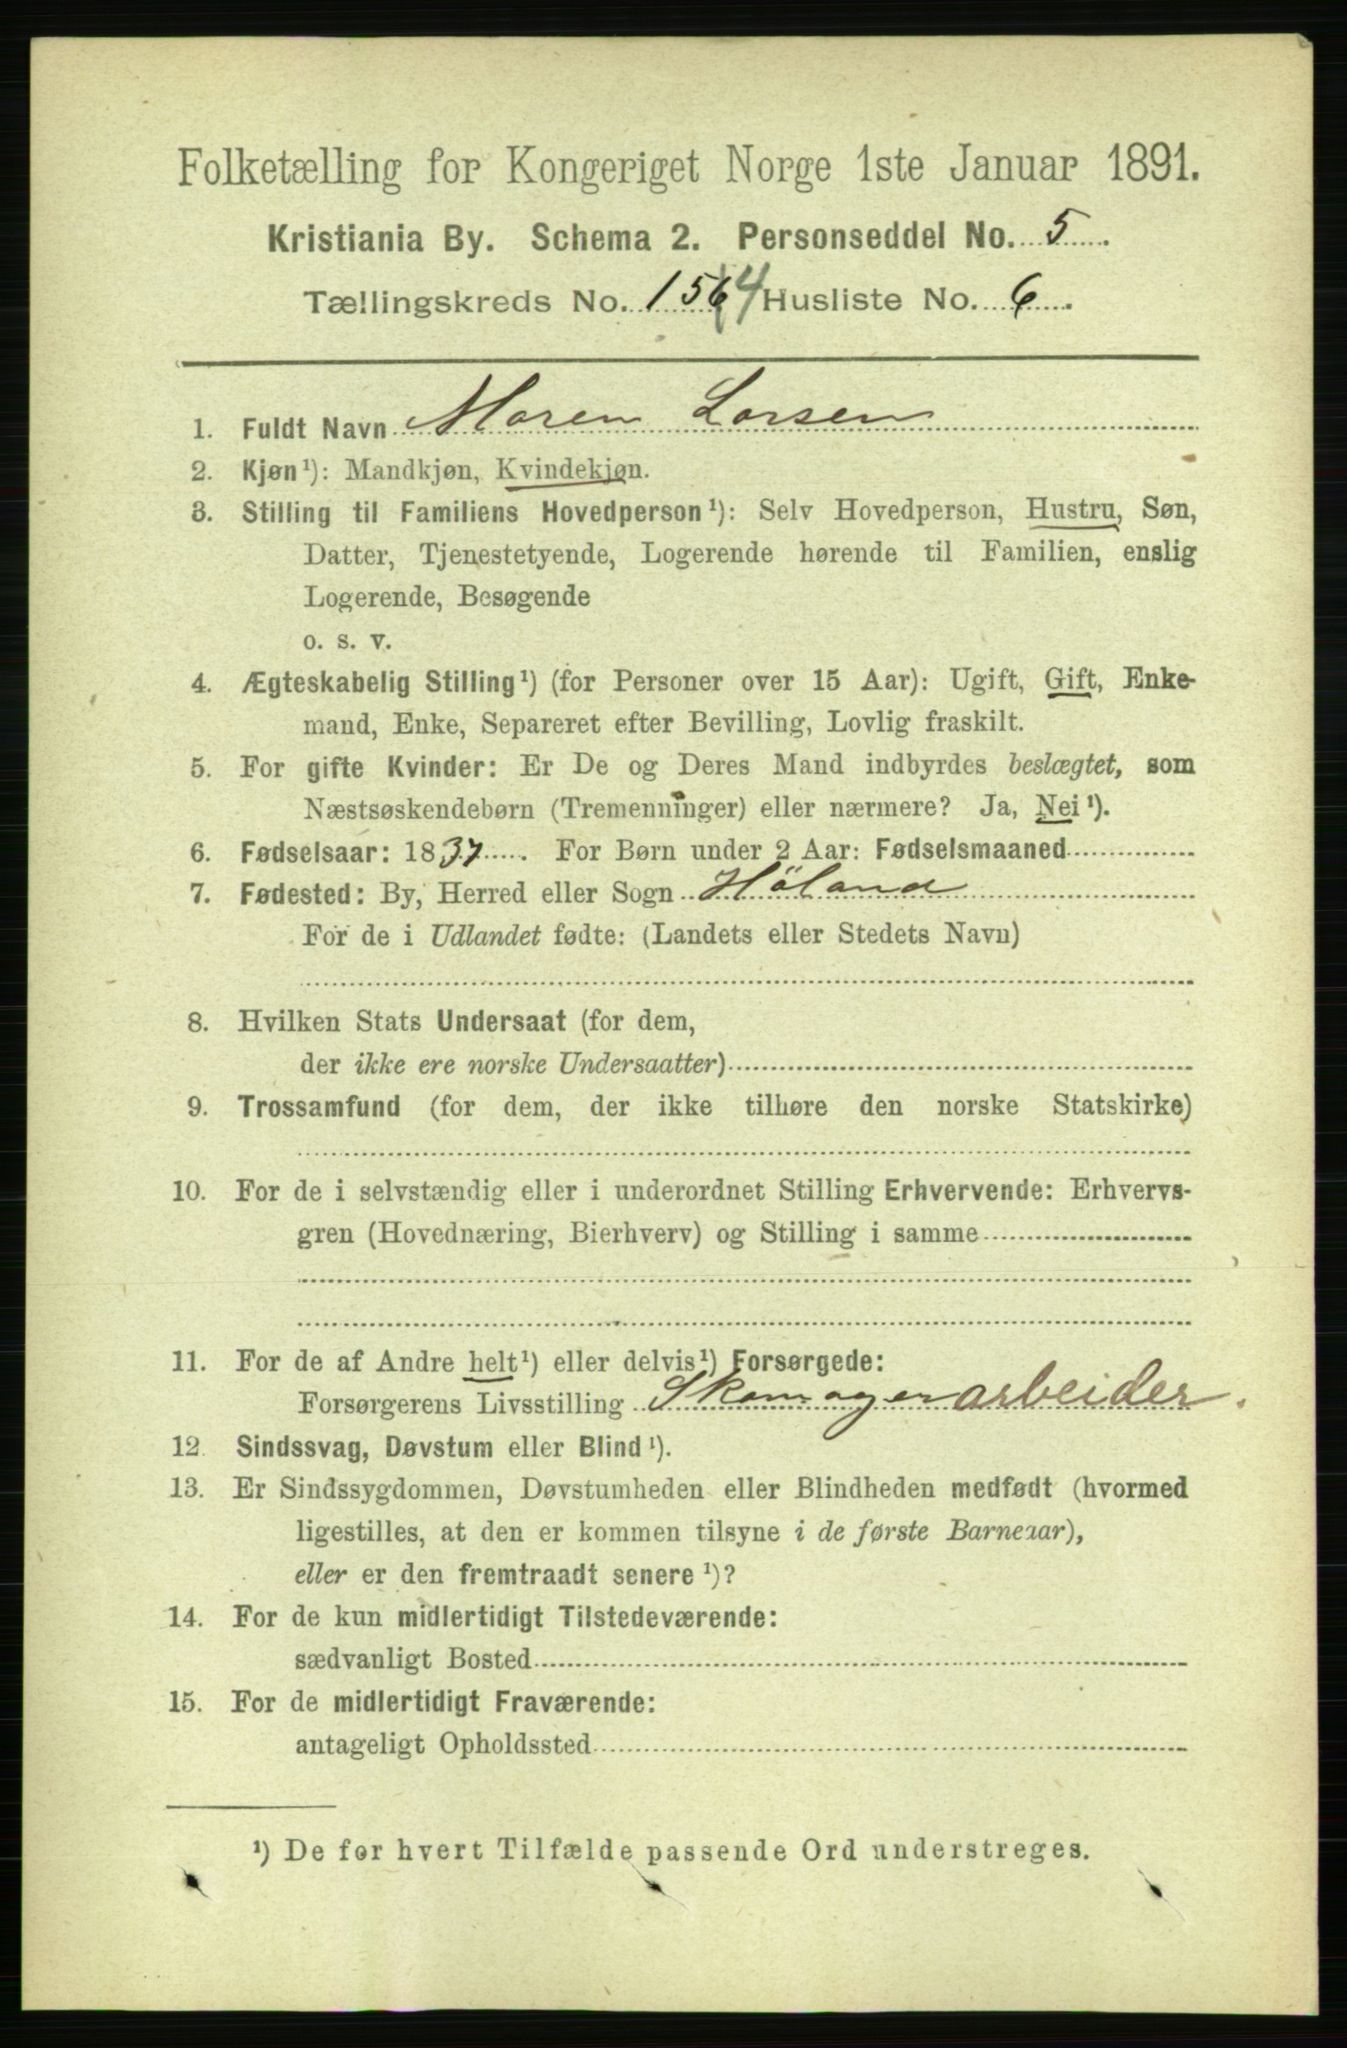 Folketælling for Kongeriget Norge 1ste Januar 1891.
Kristiania By. Schema 2. Personseddel No. 5.
Tællingskreds No. 1564 Husliste No. 6.
1. Fuldt Navn Maren Larsen
2. Kjøn¹): Mandkjøn, Kvindekjøn.
3. Stilling til Familiens Hovedperson¹): Selv Hovedperson, Hustru, Søn,
Datter, Tjenestetyende, Logerende hørende til Familien, enslig
Logerende, Besøgende
o. s. v.
4. Ægteskabelig Stilling¹) (for Personer over 15 Aar): Ugift, Gift, Enke-
mand, Enke, Separeret efter Bevilling, Lovlig fraskilt.
5. For gifte Kvinder: Er De og Deres Mand indbyrdes beslægtet, som
Næstsøskendebørn (Tremenninger) eller nærmere? Ja, Nei¹).
6. Fødselsaar: 1837. For Børn under 2 Aar: Fødselsmaaned
7. Fødested: By, Herred eller Sogn Höland
For de i Udlandet fødte: (Landets eller Stedets Navn)
8. Hvilken Stats Undersaat (for dem,
der ikke ere norske Undersaatter)
9. Trossamfund (for dem, der ikke tilhøre den norske Statskirke)
10. For de i selvstændig eller i underordnet Stilling Erhvervende: Erhvervs-
gren (Hovednæring, Bierhverv) og Stilling i samme
11. For de af Andre helt¹) eller delvis¹) Forsørgede:
Forsørgerens Livsstilling Skomagerarbeider.
12. Sindssvag, Døvstum eller Blind¹).
13. Er Sindssygdommen, Døvstumheden eller Blindheden medfødt (hvormed
ligestilles, at den er kommen tilsyne i de første Barneaar),
eller er den fremtraadt senere¹)?
14. For de kun midlertidigt Tilstedeværende:
sædvanligt Bosted
15. For de midlertidigt Fraværende:
antageligt Opholdssted
¹) De for hvert Tilfælde passende Ord understreges.